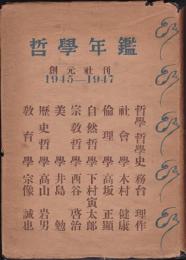 哲學年鑑
創元社刊
1945—1947
哲學哲學史 務台理作
社會學 木村健康
倫理學 高坂正顯
自然哲學 下村寅太郎
宗敎哲學 西谷啓治
美學 井島勉
歷史哲學 高山岩男
敎育學 宗像誠也